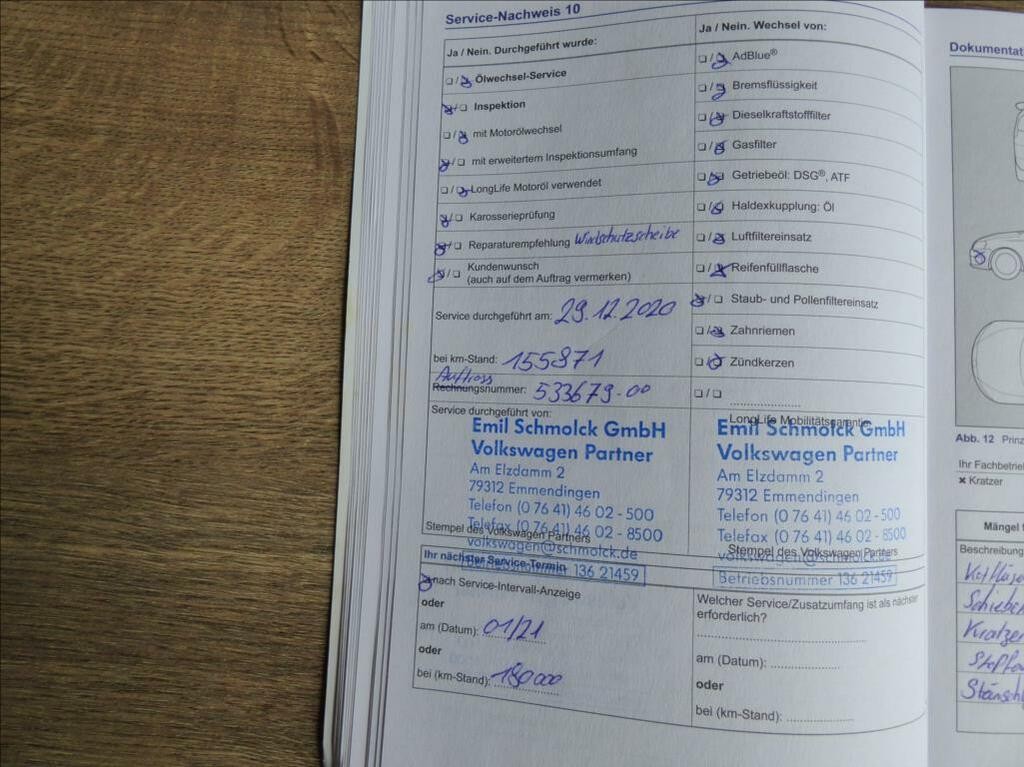 Service-Nachweis 10
Ja / Nein. Durchgeführt wurde:
Ölwechsel-Service
Inspektion
mit Motorölwechsel
mit erweitertem Inspektionsumfang
LongLife Motoröl verwendet
Karosserieprüfung
Reparaturempfehlung Windschutzscheibe
Kundenwunsch
(auch auf dem Auftrag vermerken)
Service durchgeführt am: 29.12.2020
bei km-Stand: 155871
Auftrags
Rechnungsnummer: 533679-00
Service durchgeführt von:
Emil Schmolck GmbH
Volkswagen Partner
Am Elzdamm 2
79312 Emmendingen
Telefon (0 76 41) 46 02 - 500
Telefax (0 76 41) 46 02 - 8500
Stempel des Volkswagen Partners
volkswagen@schmolck.de
Betriebsnummer 136 21459
Ihr nächster Service-Termin
nach Service-Intervall-Anzeige
oder
am (Datum): 01/21
oder
bei (km-Stand): 180000
Ja / Nein. Wechsel von:
AdBlue®
Bremsflüssigkeit
Dieselkraftstofffilter
Gasfilter
Getriebeöl: DSG®, ATF
Haldexkupplung: Öl
Luftfiltereinsatz
Reifenfüllflasche
Staub- und Pollenfiltereinsatz
Zahnriemen
Zündkerzen
LongLife Mobilitätsgarantie
Emil Schmolck GmbH
Volkswagen Partner
Am Elzdamm 2
79312 Emmendingen
Telefon (0 76 41) 46 02 - 500
Telefax (0 76 41) 46 02 - 8500
Stempel des Volkswagen Partners
volkswagen@schmolck.de
Betriebsnummer 136 21459
Welcher Service/Zusatzumfang ist als nächster
erforderlich?
am (Datum):
oder
bei (km-Stand):
Dokumentat
Abb. 12 Prinz
Ihr Fachbetrie
✖ Kratzer
Mängel
Beschreibung
Kratzer